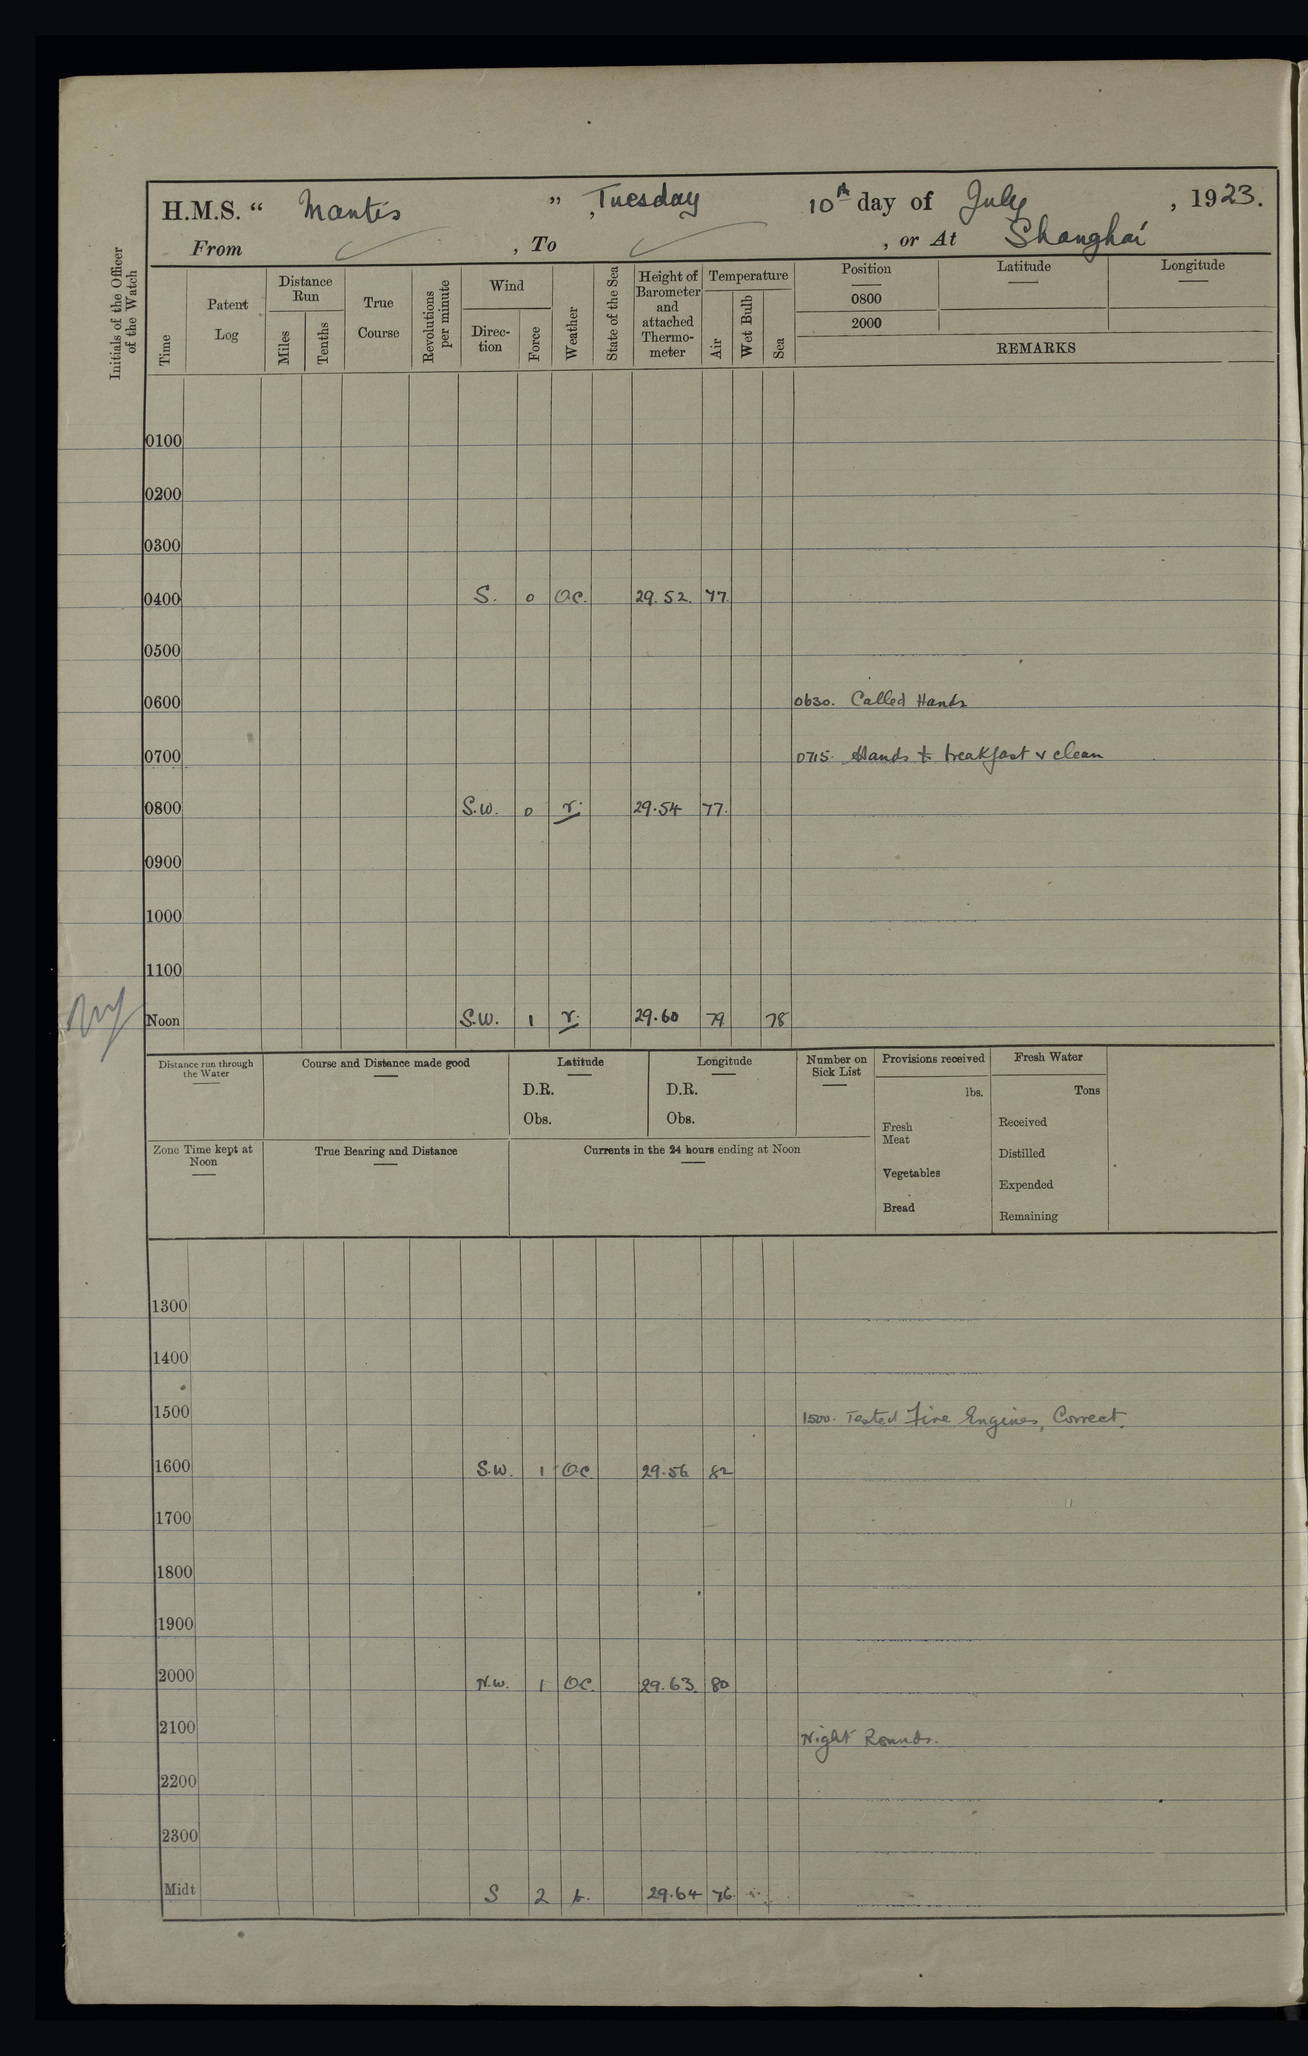 H.M.S. “ Mantis ” , Tuesday 10th day of July , 1923.
From , To , or At Shanghai
Initials of the Officer of the Watch
Time
Patent Log
Distance Run
Miles
Tenths
True Course
Revolutions per minute
Wind
Direc-tion
Force
Weather
State of the Sea
Height of Barometer and attached Thermo-meter
Temperature
Air
Wet Bulb
Sea
Position Latitude Longitude
0800
2000
REMARKS
0100
0200
0300
0400 S. 0 O.C. 29.52. 77.
0500
0600 0630. Called Hands
0700 0715. Hands to breakfast & clean
0800 S.W. 0 r. 29.54 77.
0900
1000
1100
Noon S.W. 1 r. 29.60 79 78
Distance run through the Water
Course and Distance made good
Latitude
D.R.
Obs.
Longitude
D.R.
Obs.
Number on Sick List
Provisions received
lbs.
Fresh Meat
Vegetables
Bread
Fresh Water
Tons
Received
Distilled
Expended
Remaining
Zone Time kept at Noon
True Bearing and Distance
Currents in the 24 hours ending at Noon
1300
1400
1500 1500. Tested Fire Engines, Correct.
1600 S.W. 1 O.C. 29.56 82
1700
1800
1900
2000 N.W. 1 O.C. 29.63. 80
2100 Night Rounds.
2200
2300
Midt S 2 29.64 76